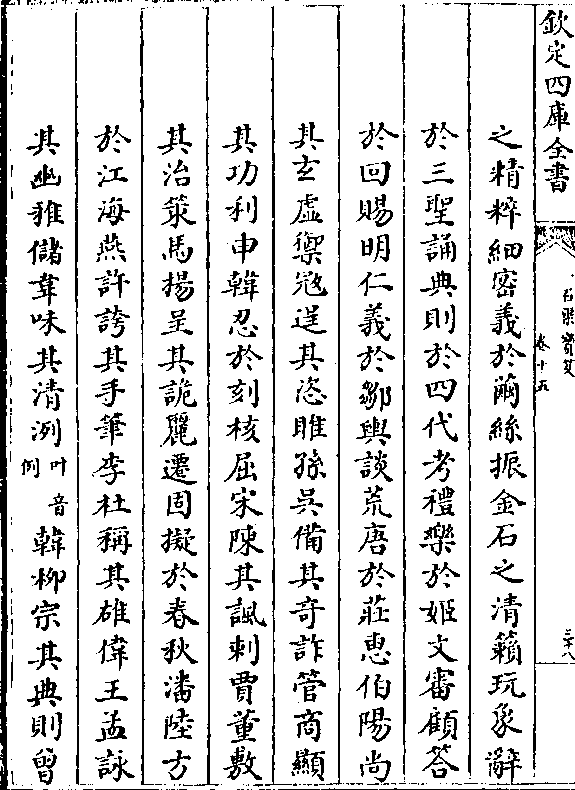 欽定四庫全書
石渠寳笈
卷十五
三十八
之精粹細密義於繭絲振金石之清籟玩象辭
於三聖誦典則於四代考禮樂於姬文審顧答
於回賜明仁義於鄒輿談荒唐於莊惠伯陽尚
其玄虛禦宼逞其恣睢孫吳備其奇詐管商顯
其功利申韓忍於刻核屈宋陳其諷刺賈董敷
其治策馬揚呈其詭麗遷固擬於春秋潘陸方
於江海燕許誇其手筆李杜稱其雄偉王孟詠
其幽雅儲韋味其清洌叶音例韓柳宗其典則曾